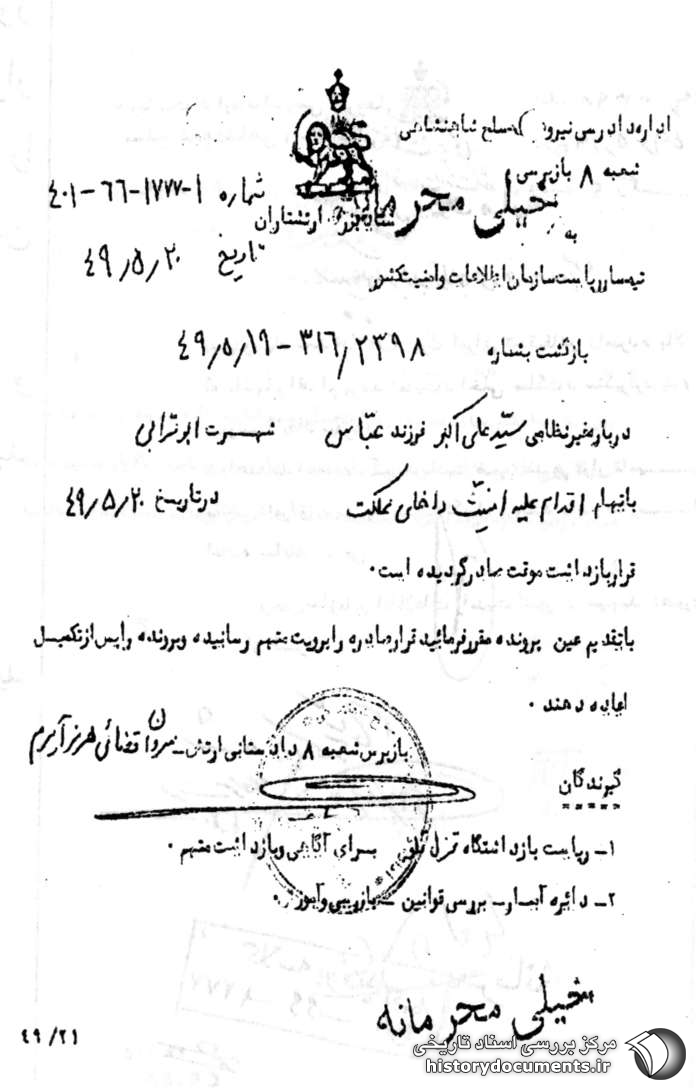 اداره دادرسی نیروهای مسلح شاهنشاهی
شعبه ۸ بازپرسی
خیلی محرمانه
شماره ۱-۱۷۷۷-۶۶-۴۰۱
ستاد بزرگ ارتشتاران
به
تاریخ ۴۹/۵/۲۰
تیمسار ریاست سازمان اطلاعات و امنیت کشور
بازگشت بشماره ۳۱۶/۲۳۹۸-۴۹/۵/۱۹
درباره غیرنظامی سیّد علی اکبر فرزند عبّاس شهرت ابوترابی
باتهام اقدام علیه امنیّت داخلی مملکت در تاریخ ۴۹/۵/۲۰
قرار بازداشت موقت صادر گردیده است.
با تقدیم عین پرونده مقرر فرمائید قرار صادره را برویت متهم رسانیده و پرونده را پس از تکمیل
اعاده دهند.
بازپرس شعبه ۸ دادستانی ارتش-سروان قضائی هرمز آریرم
گیرندگان
۱- ریاست بازداشتگاه قزل قلعه برای آگاهی و بازداشت متهم.
۲- دائره آمار- بررسی قوانین - بازرسی و آموزش.
خیلی محرمانه
۴۹/۲۱
مرکز بررسی اسناد تاریخی
historydocuments.ir